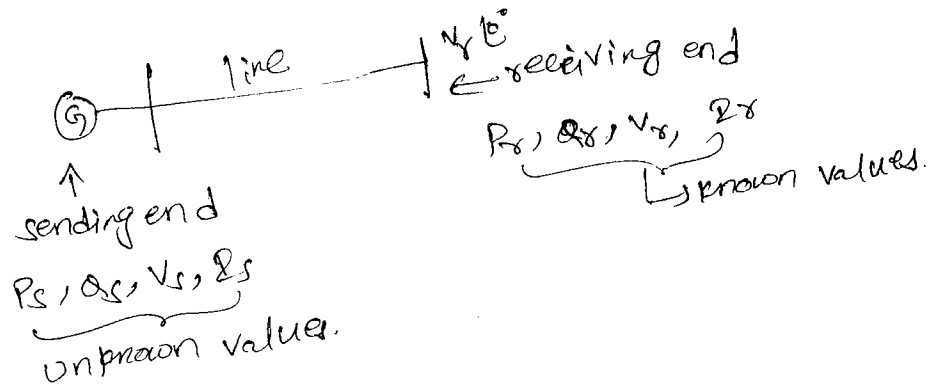 line
Vr∠0°
← receiving end
G
Pr, Qr, Vr, Ir
↳ known values.
↑
sending end
Ps, Qs, Vs, Is
unknown values.